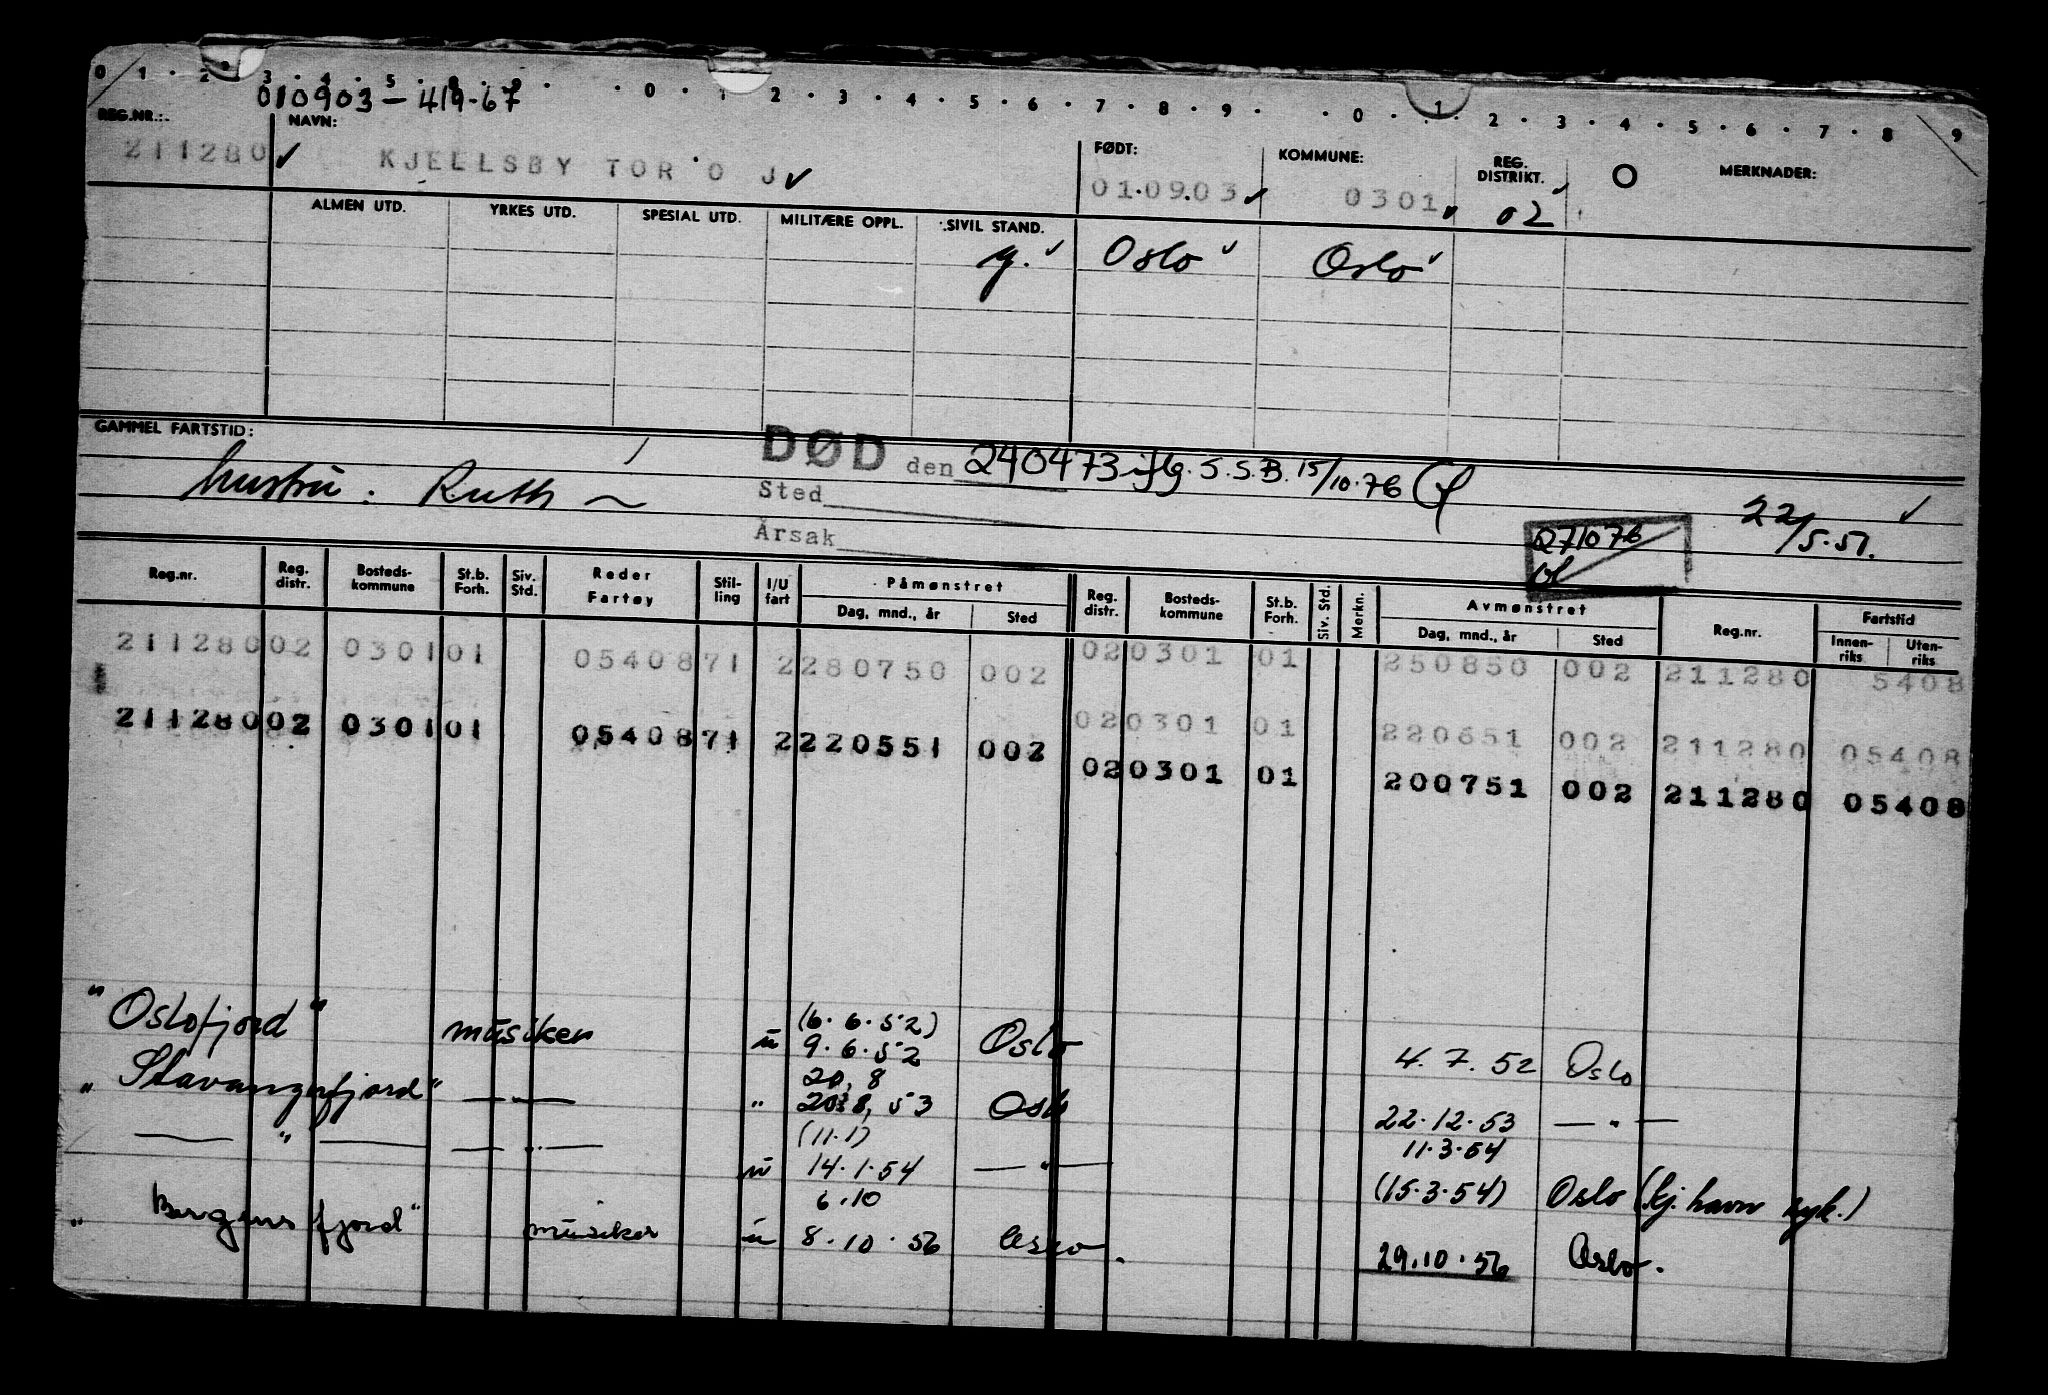 0 1 2 3 4 5 8 9 0 1 2 3 4 5 6 7 8 9 0 1 2 3 4 5 6 7 8 9
010903 – 419.67
REG.NR.: NAVN: FØDT: KOMMUNE: REG. DISTRIKT. O MERKNADER:
211280 ✓ KJELLSBY TOR O J ✓ 01.09.03 ✓ 0301 ✓ 02
ALMEN UTD. YRKES UTD. SPESIAL UTD. MILITÆRE OPPL. SIVIL STAND.
g. ✓ Oslo ✓ Oslo ✓
GAMMEL FARTSTID:
DØD den 240473 iflg. S.S.B. 15/10.76
hustru: Ruth ~ Sted 22/5.51. ✓
Årsak 271076
Reg.nr. Reg. distr. Bosteds-kommune St.b. Forh. Siv. Std. Reder Fartøy Stil-ling I/U fart Påmønstret Reg. distr. Bosteds-kommune St.b. Forh. Siv. Std. Merkn. Avmønstret Reg.nr. Fartstid
Dag, mnd., år Sted Dag, mnd., år Sted Innen-riks Uten-riks
211280 02 0301 01 05408 71 2 280750 002 02 0301 01 250850 002 211280 5408
02 0301 01 220651 002 211280 05408
211280 02 0301 01 05408 71 2 220551 002 02 0301 01 200751 002 211280 05408
(6.6.52)
"Oslofjord" musiker u 9.6.52 Oslo 4.7.52 Oslo
20.8
"Stavangerfjord" — — " 20.8.53 Oslo 22.12.53 — " —
(11.1) 11.3.54
— " — — " — u 14.1.54 — " — (15.3.54) Oslo (kj. havn syk.)
6.10
"Bergensfjord" musiker u 8.10.56 Oslo. 29.10.56 Oslo.